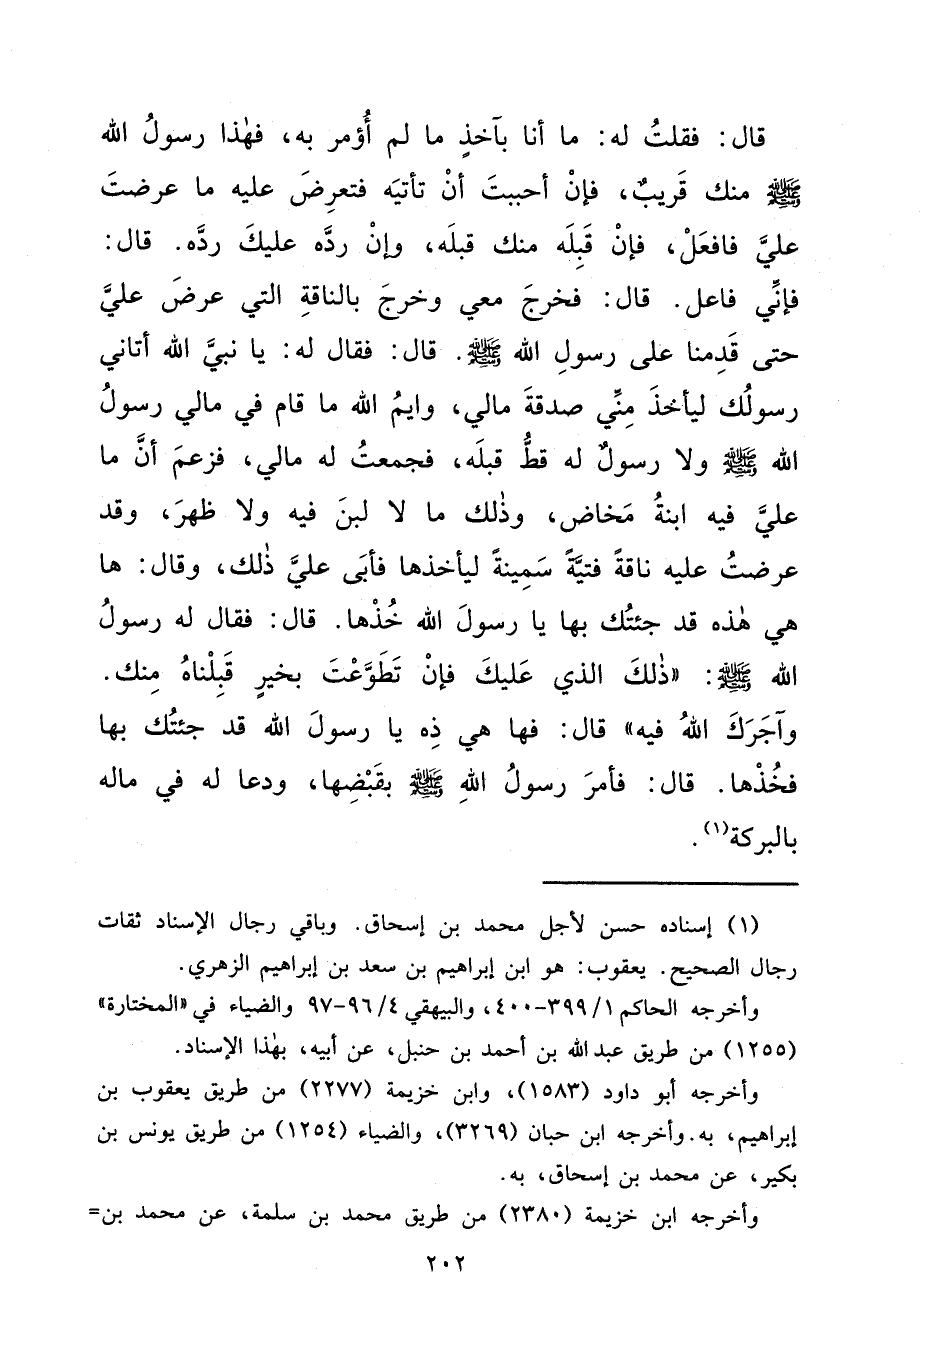 قال: فقلتُ له: ما أنا بآخذٍ ما لم أُؤمر به، فهٰذا رسولُ الله
ﷺ منك قَريبٌ، فإنْ أحببتَ أنْ تأتيَه فتعرِضَ عليه ما عرضتَ
عليَّ فافعَلْ، فإنْ قَبِلَه منك قبلَه، وإنْ ردَّه عليكَ ردَّه. قال:
فإنِّي فاعل. قال: فخرجَ معي وخرجَ بالناقةِ التي عرضَ عليَّ
حتى قَدِمنا على رسولِ الله ﷺ. قال: فقال له: يا نبيَّ الله أتاني
رسولُك ليأخذَ مِنِّي صدقةَ مالي، وايمُ الله ما قام في مالي رسولُ
الله ﷺ ولا رسولٌ له قطُّ قبلَه، فجمعتُ له مالي، فزعمَ أنَّ ما
عليَّ فيه ابنةُ مَخاض، وذٰلك ما لا لبنَ فيه ولا ظهرَ، وقد
عرضتُ عليه ناقةً فتيَّةً سَمِينةً ليأخذها فأبَى عليَّ ذٰلك، وقال: ها
هي هٰذه قد جئتُك بها يا رسولَ الله خُذْها. قال: فقال له رسولُ
الله ﷺ: «ذٰلكَ الذي عَليكَ فإنْ تَطَوَّعْتَ بخيرٍ قَبِلْناهُ مِنك.
وآجَرَكَ اللهُ فيه» قال: فها هي ذِه يا رسولَ الله قد جئتُك بها
فخُذْها. قال: فأمرَ رسولُ اللهِ ﷺ بقَبْضِها، ودعا له في ماله
بالبركة(١).
(١) إسناده حسن لأجل محمد بن إسحاق. وباقي رجال الإسناد ثقات
رجال الصحيح. يعقوب: هو ابن إبراهيم بن سعد بن إبراهيم الزهري.
وأخرجه الحاكم ٣٩٩/١-٤٠٠، والبيهقي ٩٦/٤-٩٧ والضياء في «المختارة»
(١٢٥٥) من طريق عبد الله بن أحمد بن حنبل، عن أبيه، بهٰذا الإسناد.
وأخرجه أبو داود (١٥٨٣)، وابن خزيمة (٢٢٧٧) من طريق يعقوب بن
إبراهيم، به. وأخرجه ابن حبان (٣٢٦٩)، والضياء (١٢٥٤) من طريق يونس بن
بكير، عن محمد بن إسحاق، به.
وأخرجه ابن خزيمة (٢٣٨٠) من طريق محمد بن سلمة، عن محمد بن=
٢٠٢